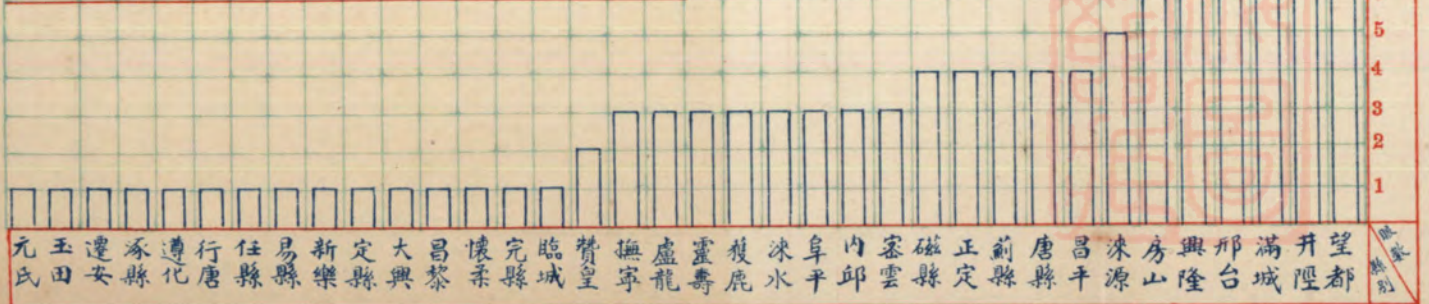 5
4
3
2
1
元氏
玉田
遷安
涿縣
遵化
行唐
任縣
易縣
新樂
定縣
大興
昌黎
懷柔
完縣
臨城
贊皇
撫寧
盧龍
靈壽
獲鹿
淶水
阜平
內邱
密雲
磁縣
正定
薊縣
唐縣
昌平
淶源
房山
興隆
邢台
滿城
井陘
望都
縣別